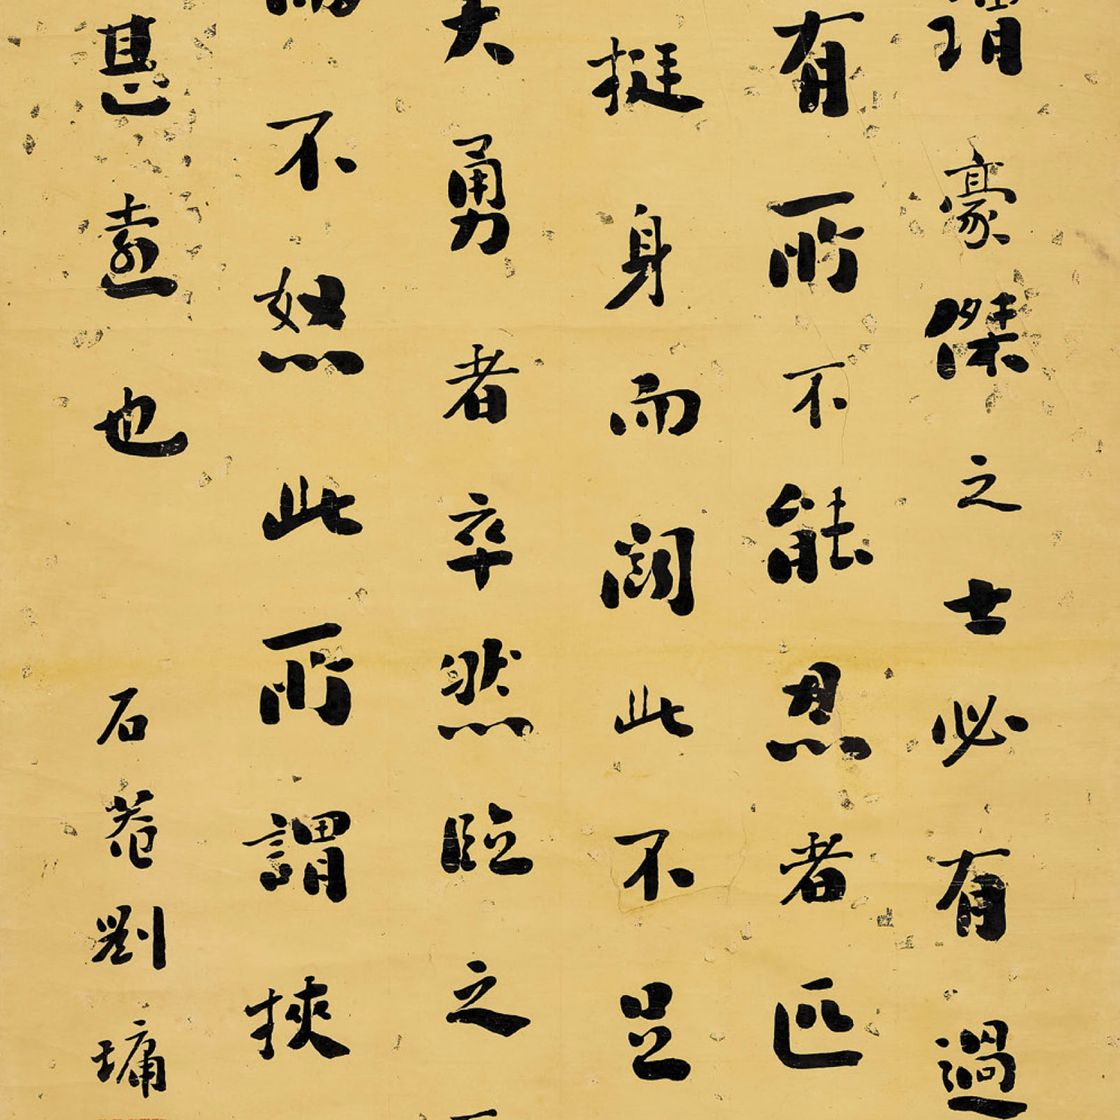 謂豪傑之士必有過
有所不能忍者匹
挺身而鬬此不足
大勇者卒然臨之
不怒此所謂挾
甚遠也
石菴劉墉